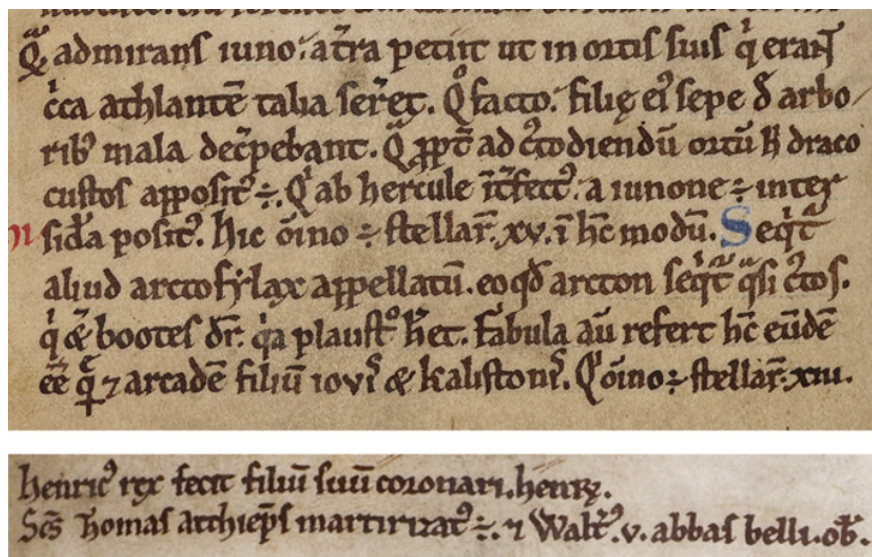 Q̄ admirans iuno. at̄ra petiit ut in ortis suis q̇ erant
c̄ca athlantē talia ser̄et. Q°facto. filię ei᷒ sepe đ arbo/
rib᷒ mala dec̄pebant. Q̄ p̄pt̄ ad c᷒todiendū ortū h̄ draco
custos apposit᷒ ÷. Qⁱ ab hercule īt̄fect᷒. a iunone ÷ inter
sid̄a posit᷒. hic ōino ÷ stellaꝝ. xv. ī hc̄ modū. Seqⁱt̄
aliud arctofylax appellatū. eo qđ arcton seqⁱt̄ qᵃsi c᷒tos.
qⁱ & bootes dr̄. qⁱa plaust° h̄et. Fabula aū refert hc̄ eūdē
ēē qᵃ ⁊ arcadē filiū iovis & kalistonis. Qⁱ ōino ÷ stellaꝝ. xiii.
henric᷒ rex fecit filiū suū coronari. henrꝝ.
Sc̄s Thomas archiep̄s martirizat᷒ ÷. ⁊ Walt̄᷒. v. abbas belli. ob̄.